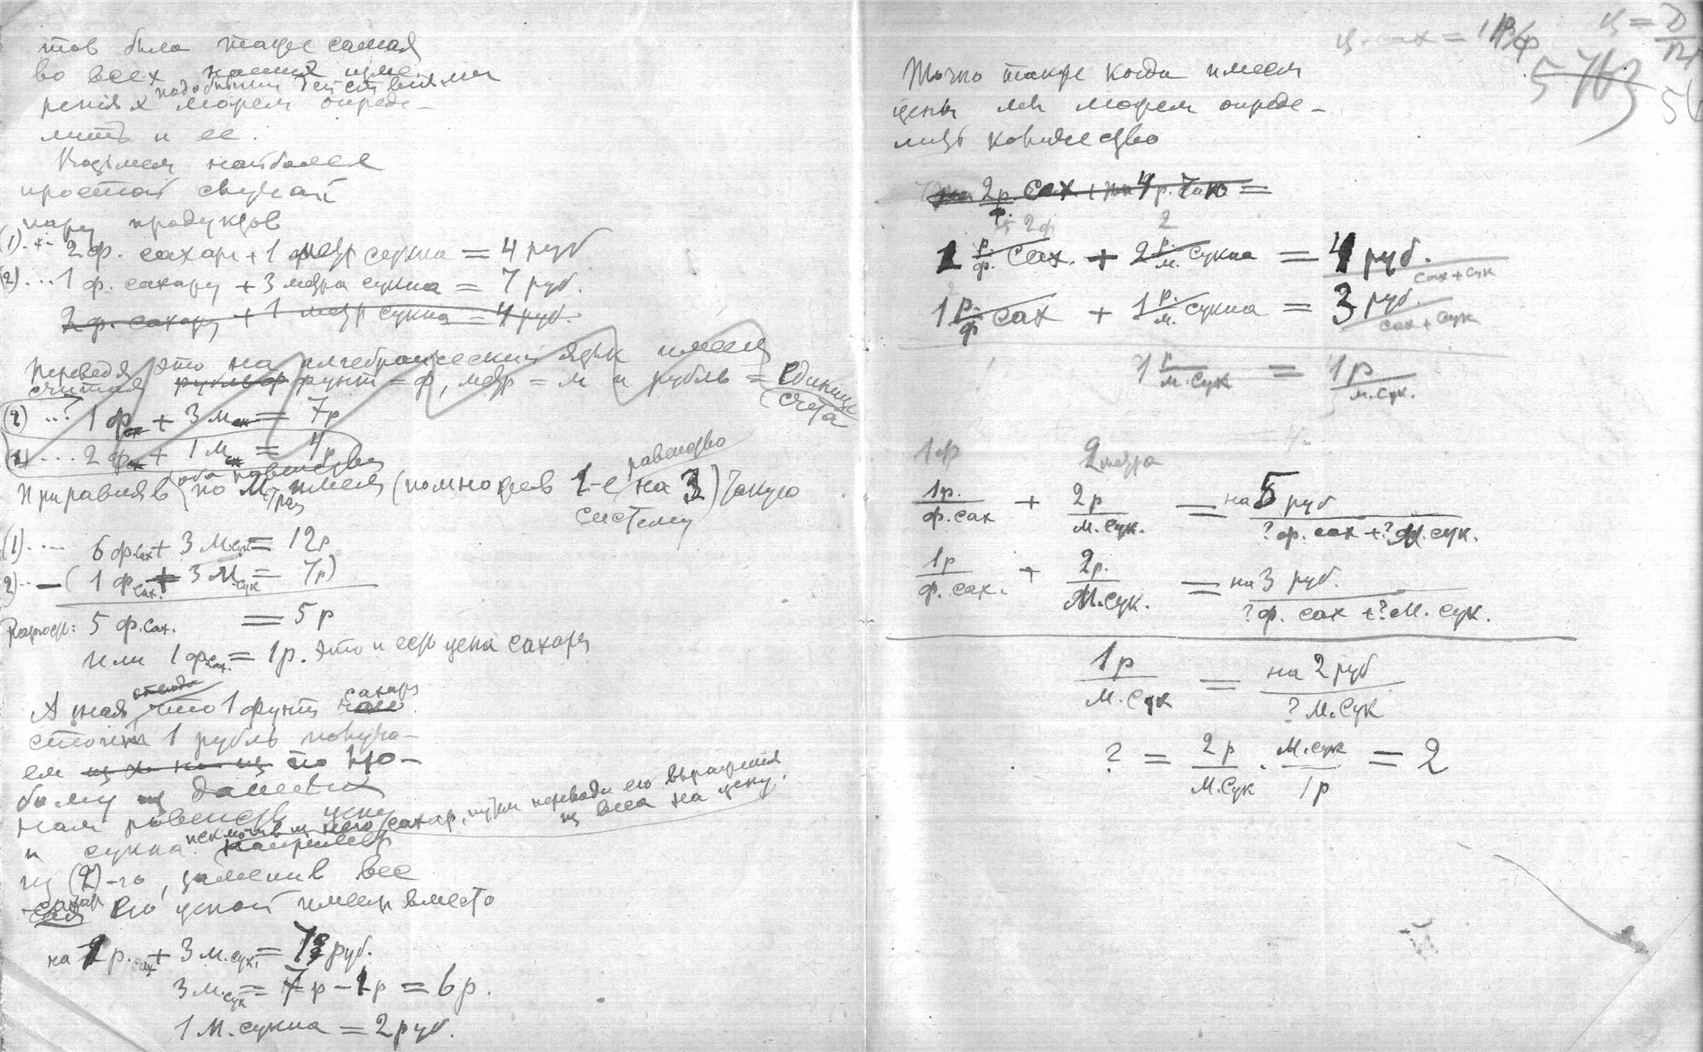 тов была также самая
во всех наших изме
подобными действиями
рениях можем опреде-
лить и ее.
Возьмем наиболее
простой случай
пару продуктов
(1)... 2 ф. сахару + 1 метр сукна = 4 руб
(2)... 1 ф. сахару + 3 метра сукна = 7 руб.
2 ф. сахару + 1 метр сукна = 4 руб.
Переведя это на алгебраический язык имеем
считая рубль ф фунт = ф, метр = м и рубль = единице
счета
(2) ..? 1 ф + 3 м = 7р
(1) ... 2 ф + 1 м = 4р
Приравняв по М имеем (помножив 1-е на 3) такую
равенство
систему
(1)... 6 ф.сах + 3 м.сук = 12р
2)... – (1 ф.сах. + 3 м.сук = 7р)
5 ф.сах. = 5 р
или 1 ф.сах. = 1р. Это и есть цена сахару
отсюда
А зная что 1 фунт сахару
стоит 1 рубль получа-
ем по лю-
бому из данных
нам равенств цену
и сукна исключив из него сахар, путем перевода его выражения
из веса на цену.
из (2)-го, заменив вес
сахар его ценой имеем вместо
на 1р.сах + 3 м.сук. = 7 руб.
3 м.сук = 7р – 1р = 6р.
1 м. сукна = 2 руб.
ц. сах = 1 р/ф
ц =
5763
Точно также когда имеем
цены мы можем опреде-
лить количество
2р. сах + 4 р. =
ф.
2ф 2
1 р./ф. сах. + 2 р./м. сукна = 4 руб. / сах + сук
1 р./ф сах + 1 р./м. сукна = 3 руб. / сах + сук
1 р / м. сук = 1р / м. сук.
1ф 2 метра
1р. / ф. сах + 2р / м. сук. = на 5 руб / ? ф. сах + ? м. сук.
1р / ф. сах. + 2р. / м. сук. = на 3 руб. / ? ф. сах + ? м. сук.
1р / м. сук = на 2 руб / ? м. сук
? = 2р / м. сук · м. сук / 1р = 2